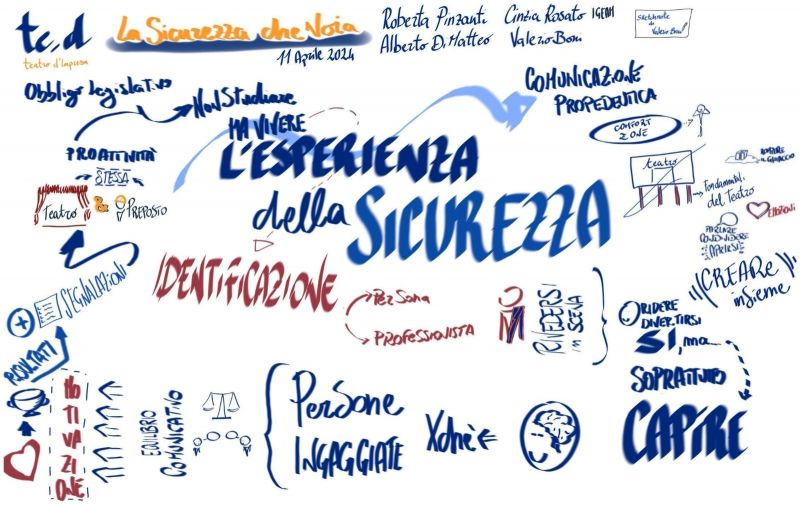 tc.d
teatro d'impresa
La Sicurezza che Noia
11 Aprile 2024
Roberta Pinzanti
Alberto Di Matteo
Cinzia Rosato IGEAM
Valerio Boni
Sketchnote
di
Valerio Boni
Obbligo legislativo
Non Studiare
MA VIVERE
L'ESPERIENZA
della
SICUREZZA
PROATTIVITÀ
STESSA
Teatro
&
PREPOSTO
SEGNALAZIONI
RISULTATI
MOTIVAZIONE
EQUILIBRIO
COMUNICATIVO
IDENTIFICAZIONE
PerSona
PROFESSIONISTA
RIVEDERSI
in SCENA
PerSone
INGAGGIATE
Xchè
COMUNICAZIONE
PROPEDEUTICA
COMFORT
ZONE
teatro
ROMPERE
IL GHIACCIO
Fondamentali
del Teatro
EMOZIONI
PARLARE
CONDIVIDERE
APRIRSI
CREARe
inSieme
RIDERE
DIVERTIRSI
SI, ma...
SOPRATTUTTO
CAPIRE